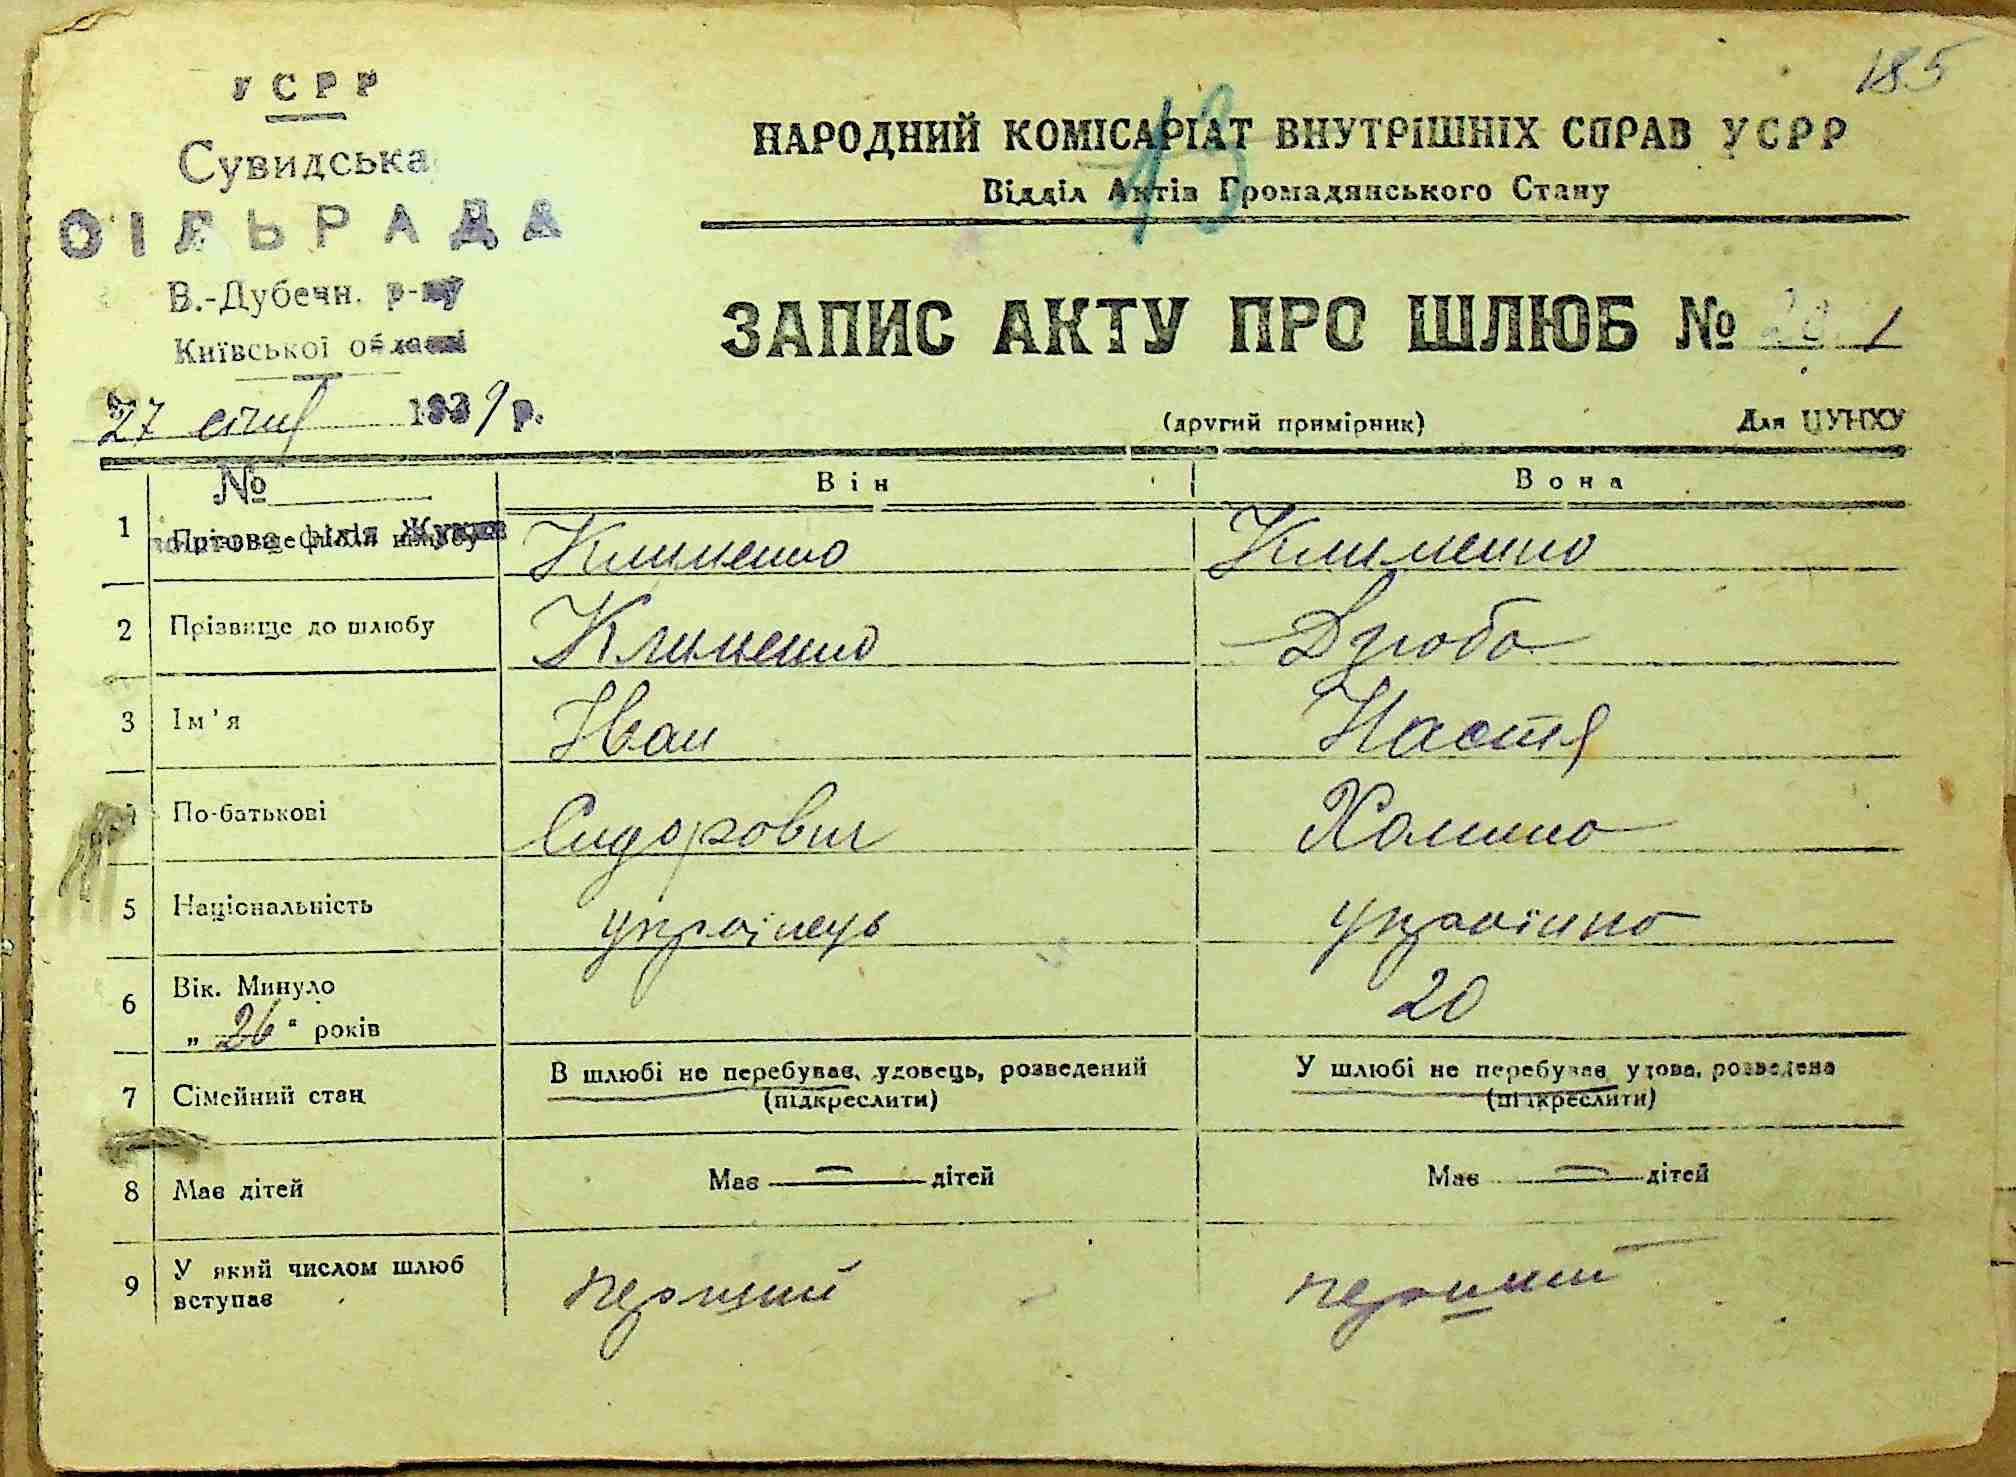 185
УСРР
Сувидська
СІЛЬРАДА
В.-Дубечн. р-ну
Київської області
27 січня 1939 р.
№
Поштова філія Жукин
13
НАРОДНИЙ КОМІСАРІАТ ВНУТРІШНІХ СПРАВ УСРР
Відділ Актів Громадянського Стану
ЗАПИС АКТУ ПРО ШЛЮБ № 1
(другий примірник) Для ЦУНХУ
Він Вона
1 Прізвище після шлюбу Клименко Клименко
2 Прізвище до шлюбу Клименко Дзюба
3 Ім'я Іван Настя
4 По-батькові Сидорович Хомівна
5 Національність українець українка
6 Вік. Минуло
„ 26 " років 20
7 Сімейний стан В шлюбі не перебуває, удовець, розведений У шлюбі не перебуває, удова, розведена
(підкреслити) (підкреслити)
8 Має дітей Має — дітей Має — дітей
9 У який числом шлюб
вступає перший перший